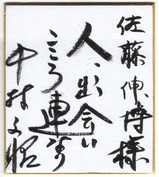 佐藤伸博様
人、出会い
こころ連なり
中村文昭